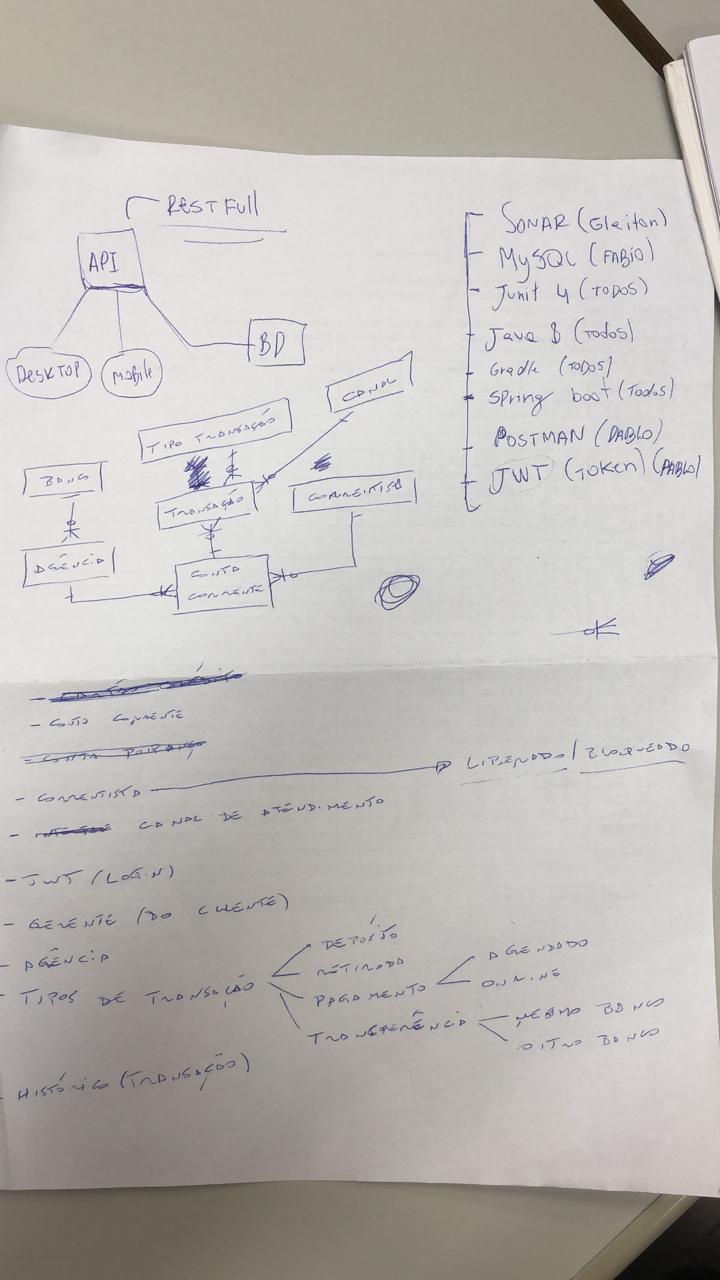 RESTFull
API
DESKTOP
Mobile
BD
SONAR (Gleiton)
MySQL (FABIO)
Junit 4 (TODOS)
Java 8 (Todos)
Gradle (TODOS)
Spring boot (Todos)
POSTMAN (PABLO)
JWT (TOKEN) (PABLO)
CANAL
TIPO TRANSAÇÃO
BANCO
TRANSAÇÃO
CORRENTISTA
AGÊNCIA
CONTA
CORRENTE
- CONTA CORRENTE
- CONTA POUPANÇA
- CORRENTISTA → LIBERADO / BLOQUEADO
- CANAL DE ATENDIMENTO
- JWT (LOGIN)
- GERENTE (DO CLIENTE)
- AGÊNCIA
- TIPOS DE TRANSAÇÃO
DEPÓSITO
RETIRADA
PAGAMENTO
AGENDADO
ONLINE
TRANSFERÊNCIA
MESMO BANCO
OUTRO BANCO
- HISTÓRICO (TRANSAÇÃO)